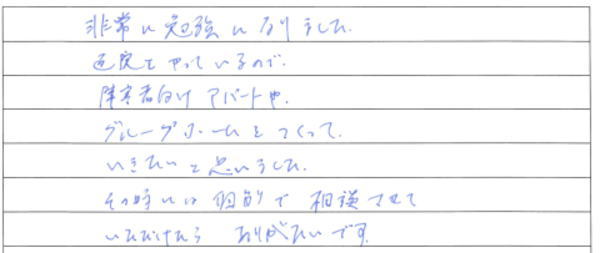 非常に勉強になりました。
医院をやっているので、
障害者向けアパートや、
グループホームをつくって、
いきたいと思いました。
その時には個別で相談させて
いただけたらありがたいです。